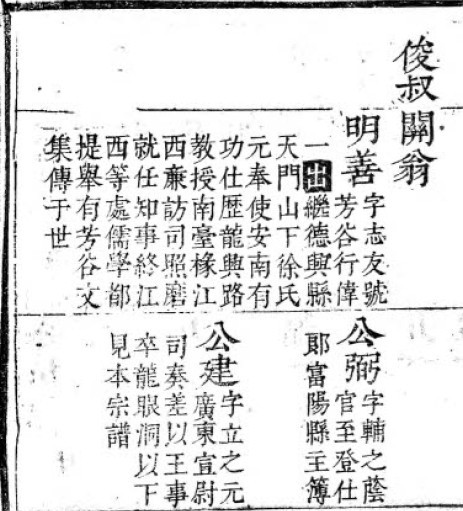 俊叔闗翁
明善
字志友號
芳谷行偉
一出繼德興縣
天門山下徐氏
元奉使安南有
功仕歷龍興路
教授南臺椽江
西亷訪司照磨
就任知事終江
西等處儒學都
提舉有芳谷文
集傳于世
公弼
字輔之蔭
官至登仕
郎富陽縣主簿
公建
字立之元
廣東宣尉
司奏差以王事
卒龍眼洞以下
見本宗譜